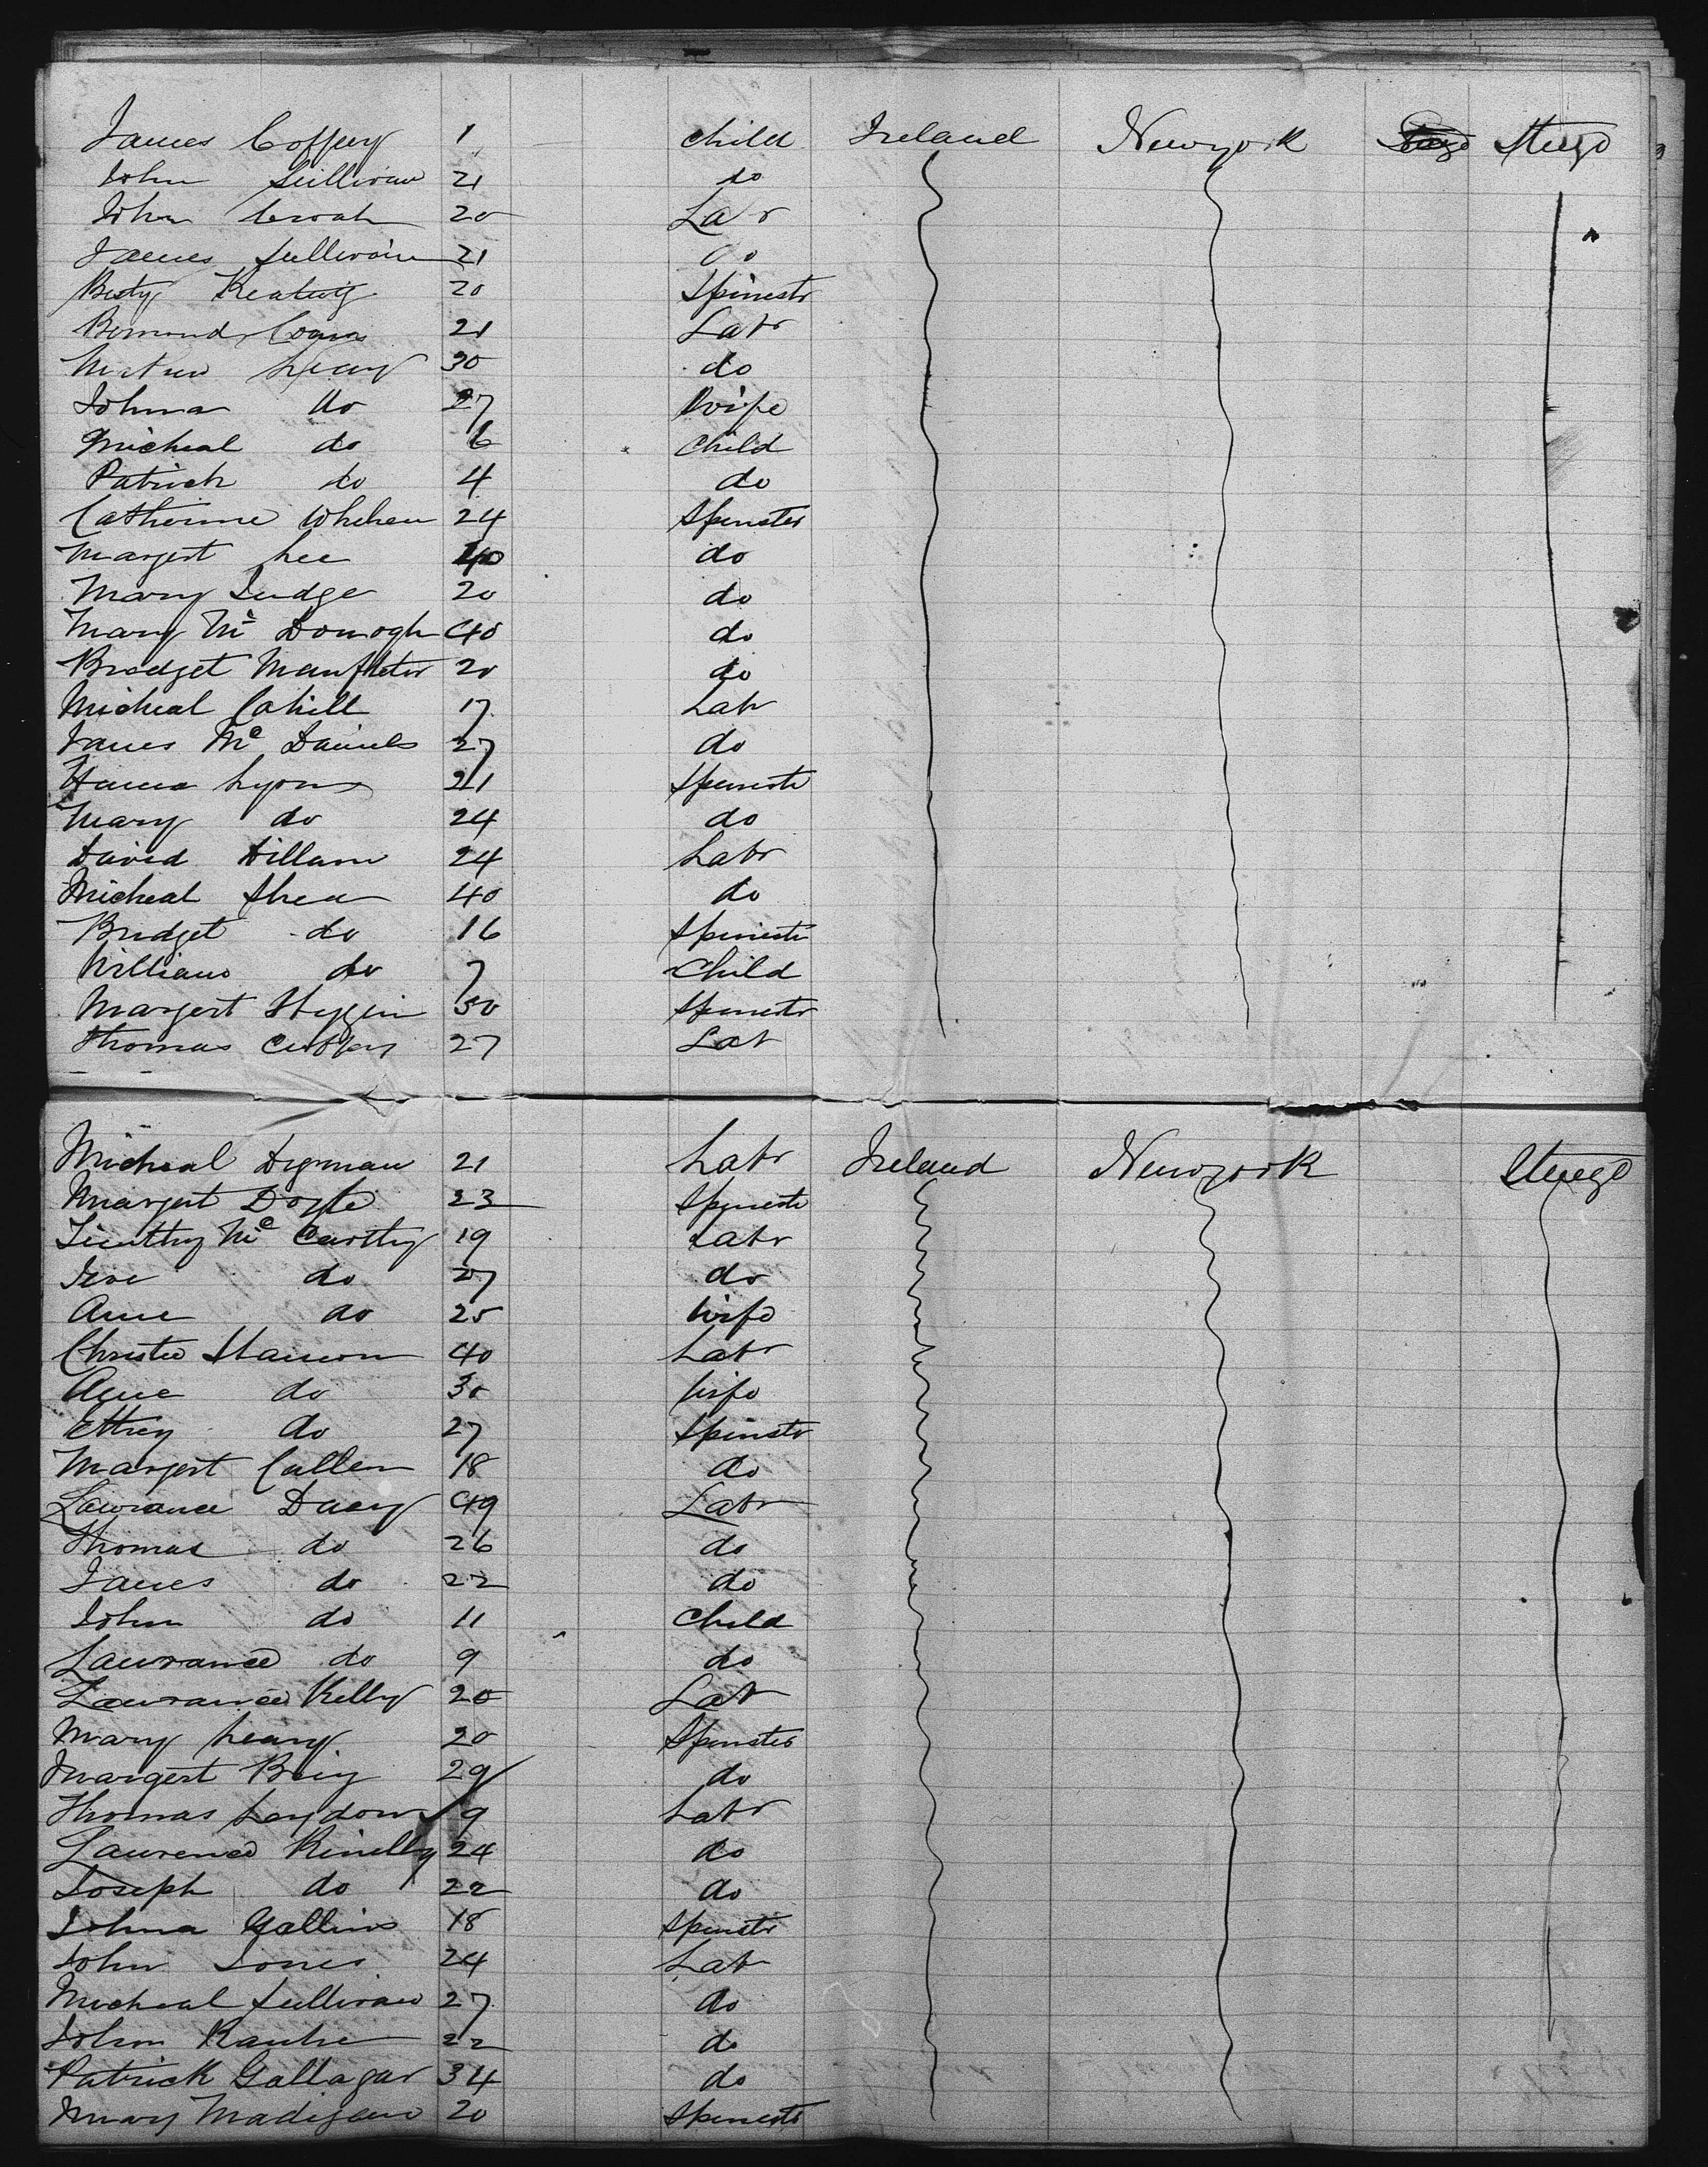 James Coffey 1 child Ireland Newyork Steege
John Sullivan 21 do
John 20 Labr
James Sullivain 21 do
Besty Keating 20 Spinestr
21 Labr
Leary 30 do
Johna do 27 Wife
Micheal do 6 Child
Patrick do 4 do
Catherine Whelen 24 Spinster
Margert Lee 40 do
Mary Judge 20 do
Mary Mc Donogh 40 do
Bridget 20 do
Micheal Cahill 17 Labr
James Mc Daniels 27 do
Hanna Lyons 21 Spinestr
Mary do 24 do
David Dillann 24 Labr
Micheal Shea 40 do
Bridget do 16 Spinestr
William do 7 Child
Margert Higgin 30 Spinestr
Thomas Cuffey 27 Lab
Micheal Digman 21 Labr Ireland Newyork Steege
Margert Doyle 23 Spinestr
Timithy Mc Carthy 19 Labr
do 27 do
Anne do 25 Wife
40 Labr
Anne do 30 Wife
do 27 Spinstr
Margert Cullen 18 do
Lawrance Dacy 49 Labr
Thomas do 26 do
James do 22 do
John do 11 Child
Lawrance do 9 do
Lawrance Kelly 20 Labr
Mary Leary 20 Spinster
Margert 29 do
Thomas Leydown 9 Labr
Lawrence 24 do
Joseph do 22 do
Johna 18 Spinstr
John Jones 24 Labr
Micheal Sullivan 27 do
John 22 do
Patrick Gallagar 34 do
Mary Madigan 20 Spinestr